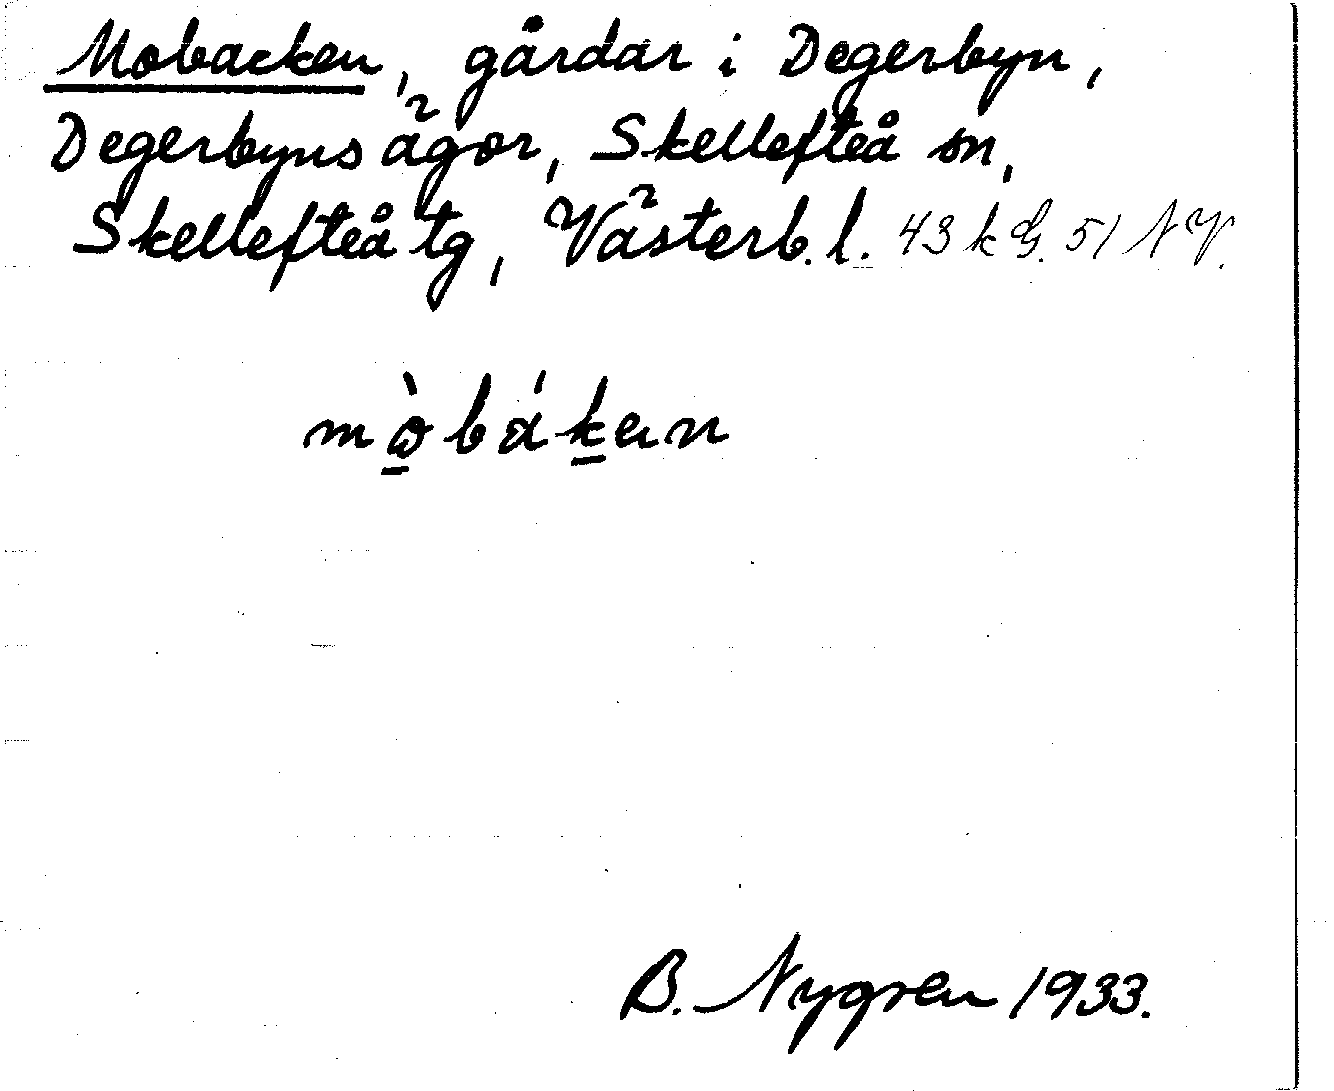 Mobacken, gårdar i Degerbyn,
Degerbyns ägor, Skellefteå sn,
Skellefteå tg, Västerb. l. 43 k G. 51 NV.
mò̠bák̠en
B. Nygren 1933.